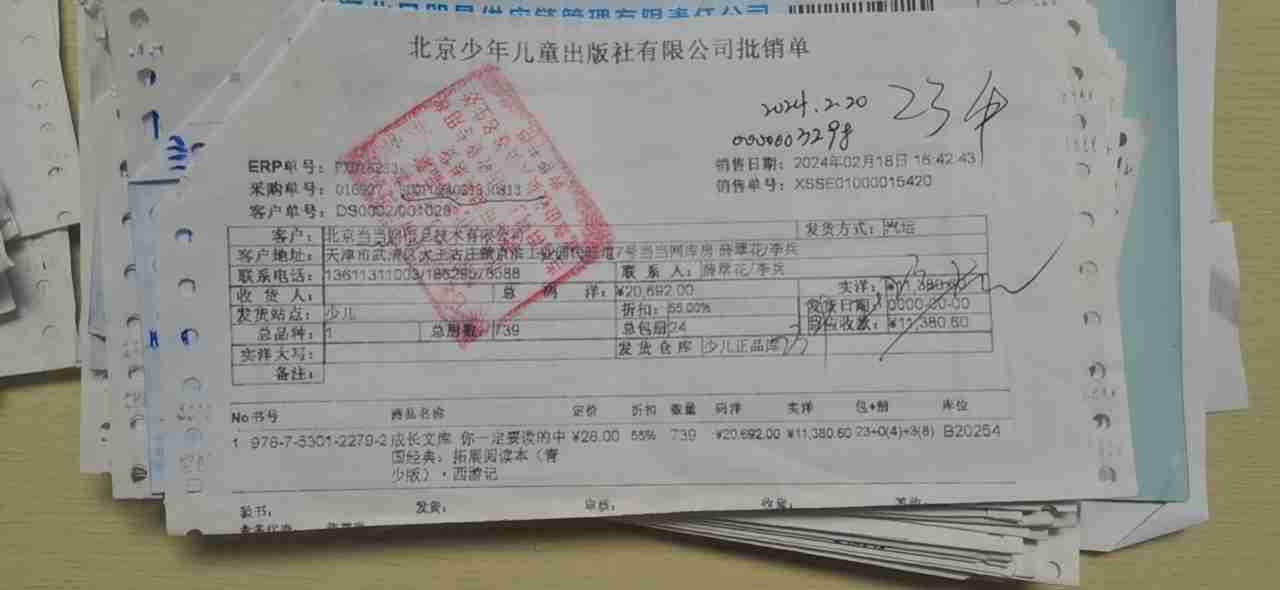 供应链管理有限责任公司
北京少年儿童出版社有限公司批销单
2024.2.20 23件
0000003298
ERP单号:
销售日期: 2024年02月18日 16:42:43
采购单号: 016927
销售单号: XSSE01000015420
客户单号: DS0002/001028
客户: 北京当当网信息技术有限公司 发货方式: 汽运
客户地址: 天津市武清区大王古庄镇京滨工业园代旺道7号当当网库房 薛翠花/李兵
联系电话: 13611311003/18629578588 联系人: 薛翠花/李兵
收货人: 总码洋: ¥20,692.00 实洋: ¥11,380.60
发货站点: 少儿 折扣: 55.00% 发货日期: 0000-00-00
总品种: 1 总册数: 739 总包册 24 应收款: ¥11,380.60
实洋大写: 发货仓库 少儿正品库
备注:
No 书号 商品名称 定价 折扣 数量 码洋 实洋 包+册 库位
1 978-7-5301-2279-2 成长文库 你一定要读的中 ¥28.00 55% 739 ¥20,692.00 ¥11,380.60 23+0(4)+3(8) B20254
国经典:拓展阅读本(青
少版)·西游记
发货: 审核: 收货: